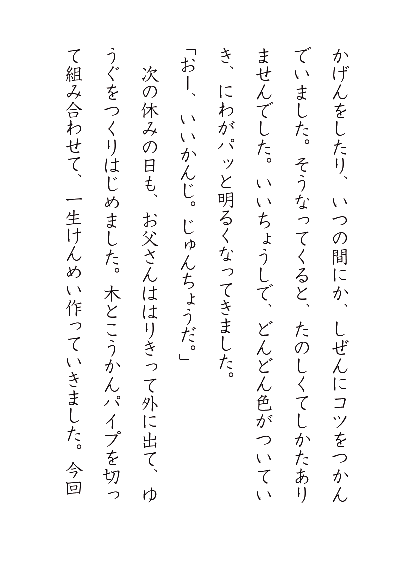 かげんをしたり、いつの間にか、しぜんにコツをつかん
でいました。そうなってくると、たのしくてしかたあり
ませんでした。いいちょうしで、どんどん色がついてい
き、にわがパッと明るくなってきました。
「おー、いいかんじ。じゅんちょうだ。」
　次の休みの日も、お父さんははりきって外に出て、ゆ
うぐをつくりはじめました。木とこうかんパイプを切っ
て組み合わせて、一生けんめい作っていきました。今回